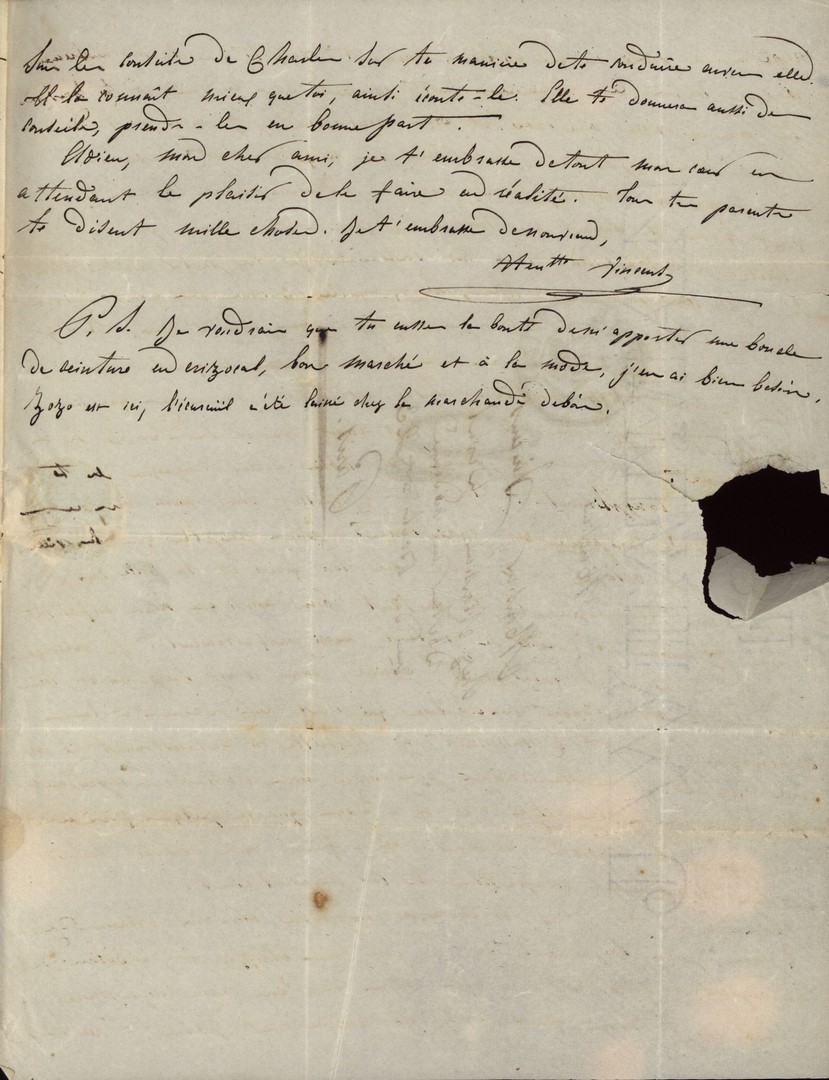 Suis les conseils de Charles sur ta manière de te conduire avec elle.
Il la connaît mieux que toi, ainsi écoute-le. Elle te donnera aussi des
conseils, prends-les en bonne part.
Adieu, mon cher ami, je t'embrasse de tout mon cœur en
attendant le plaisir de le faire en réalité. Tous tes parents
te disent mille choses. Je t'embrasse de nouveau,
Vincent
P. S. Je voudrais que tu eusses la bonté de m'apporter une boucle
de ceinture en crizocal, bon marché et à la mode, j'en ai bien besoin.
Zozo est ici, l'écureuil a été laissé chez la marchande